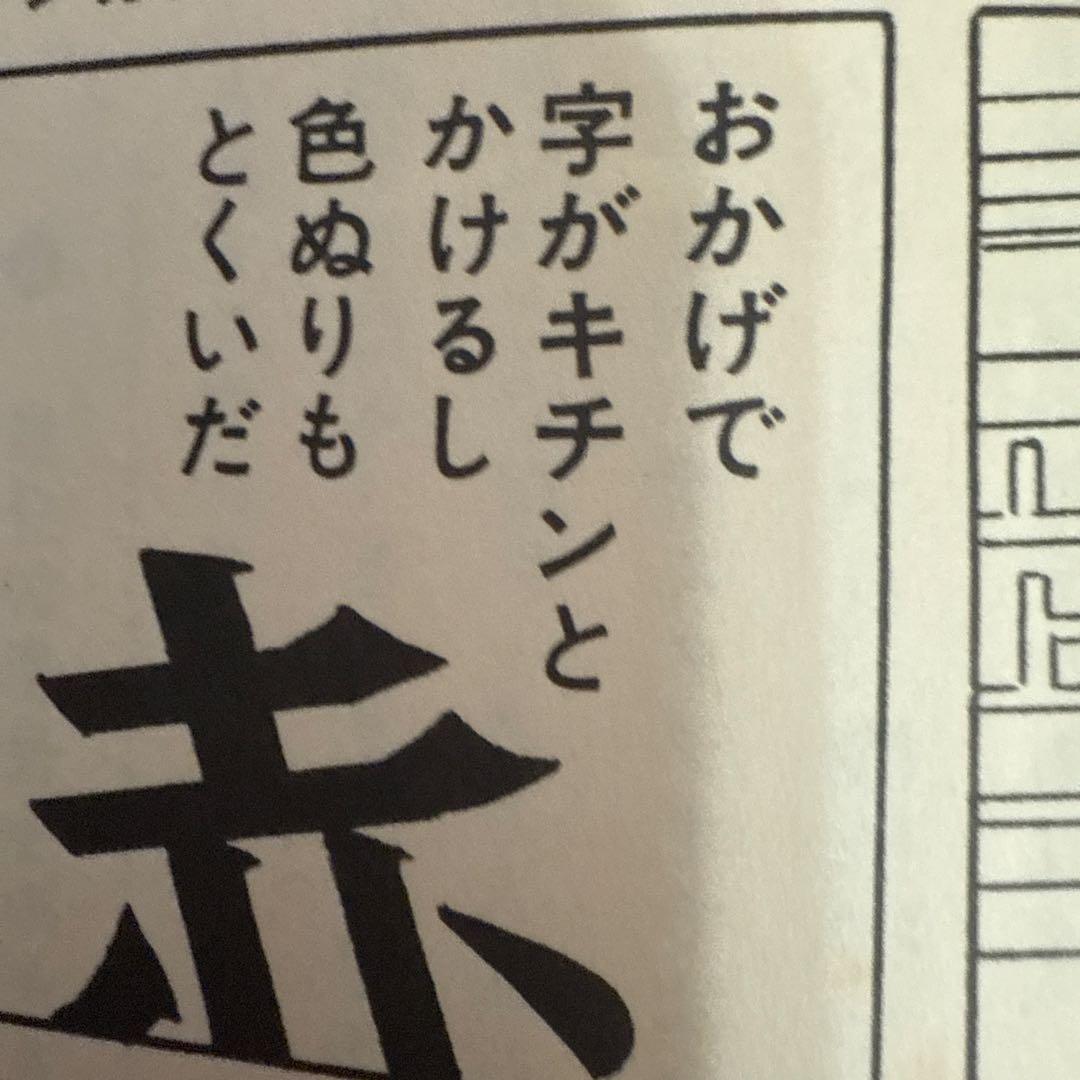 おかげで
字がキチンと
かけるし
色ぬりも
とくいだ
赤